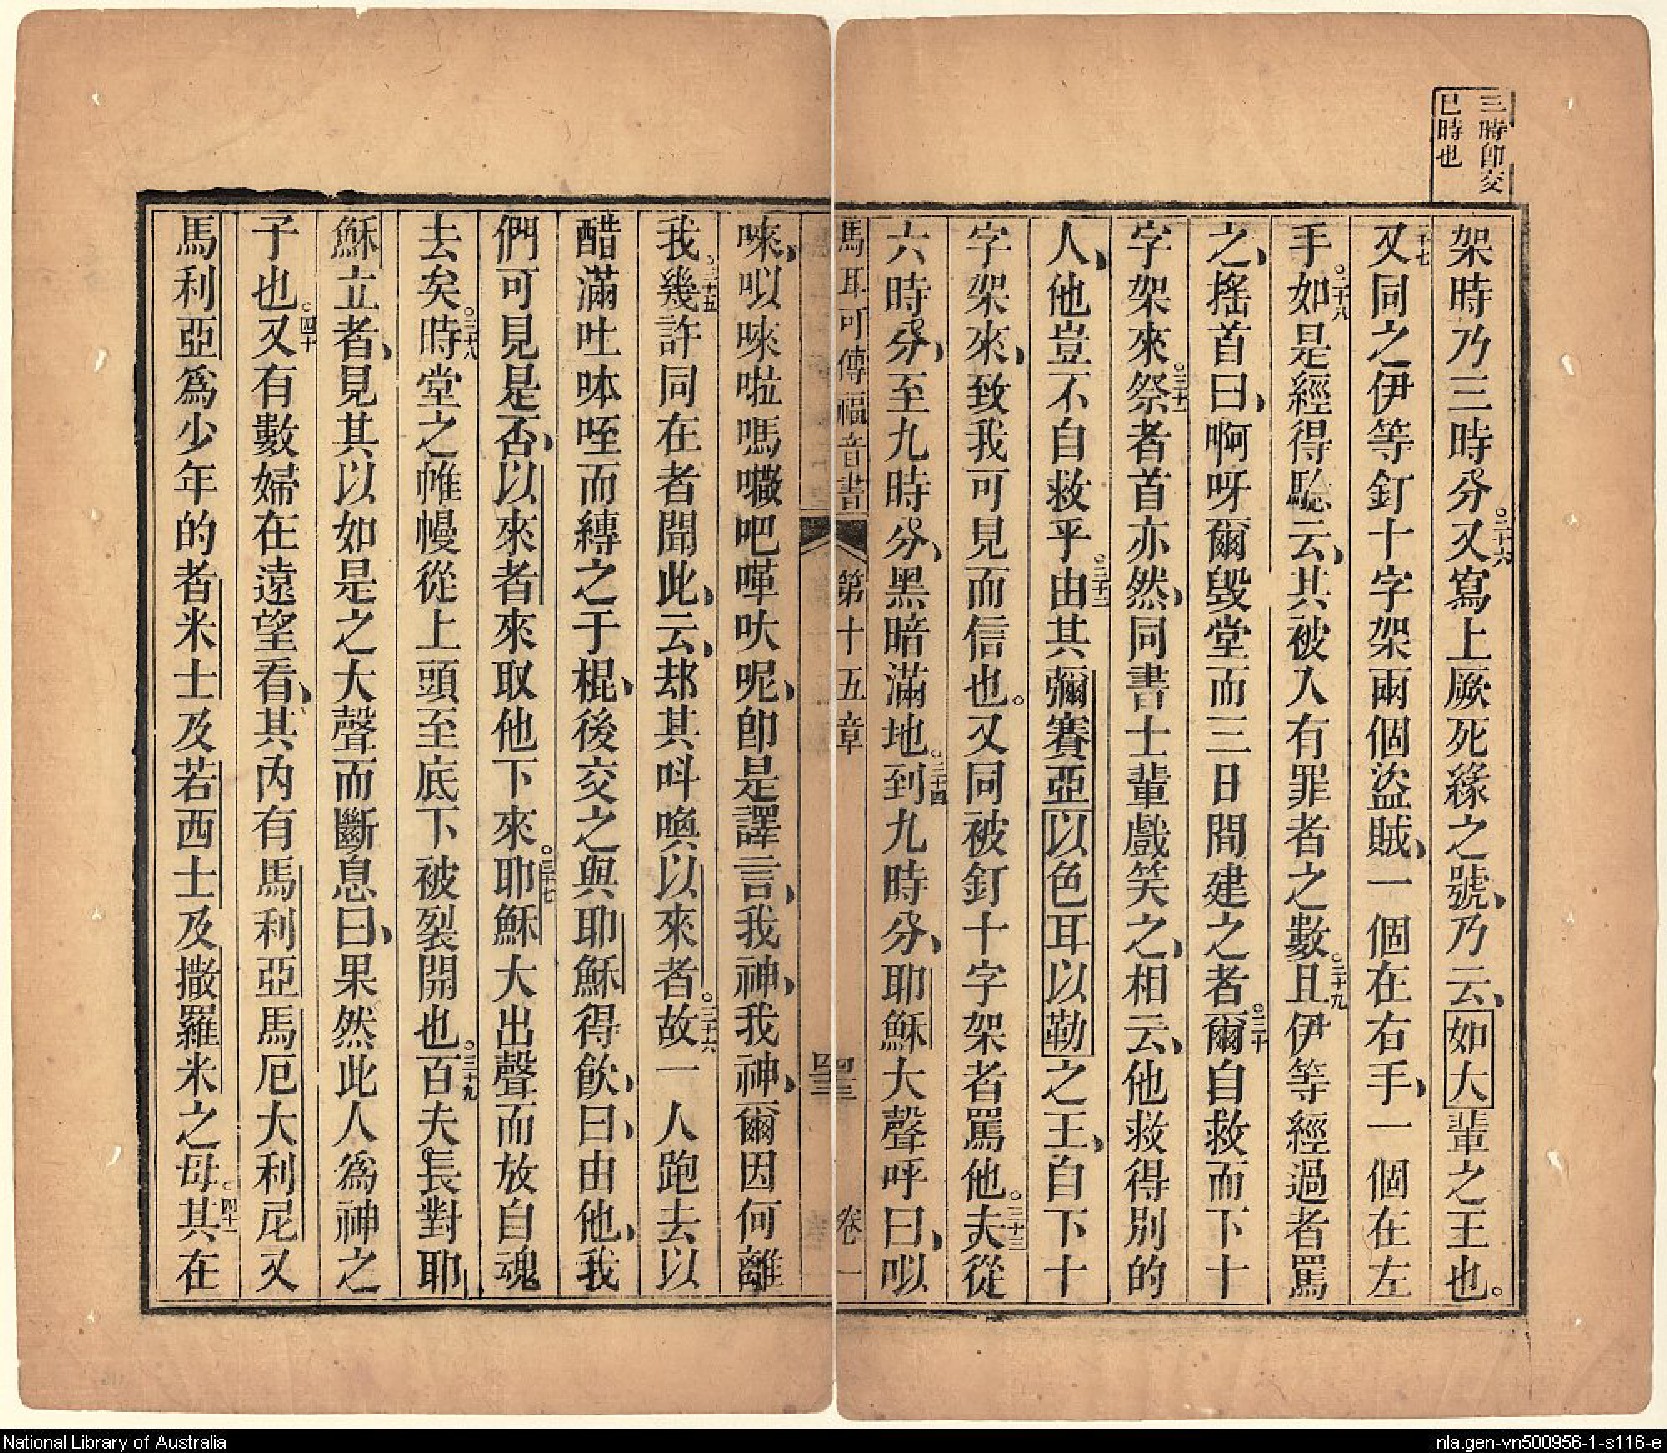 三時即交
巳時也
架時乃三時分。三十六又寫上厥死緣之號、乃云、如大輩之王也。
十七又同之伊等釘十字架兩個盜賊、一個在右手、一個在左
手。二十八如是經得騐云、其被入有罪者之數。二十九且伊等經過者罵
之、搖首曰、啊呀爾毀堂而三日間建之者。三十爾自救而下十
字架來。三十一祭者首亦然、同書士輩戲笑之、相云、他救得別的
人、他豈不自救乎。三十二由其彌賽亞以色耳以勒之王、自下十
字架來、致我可見而信也。又同被釘十字架者罵他。三十三夫從
六時分、至九時分、黑暗滿地。三十四到九時分、耶穌大聲呼曰、㕥
馬耳可傳福音書 第十五章 四三 卷一
唻、㕥唻啦嗎𡃤吧嘩吠呢、即是譯言、我神、我神、爾因何離
我。三十五幾許同在者聞此、云、却其呌喚以來者。三十六故一人跑去以
醋滿吐呠咥而縳之于棍、後交之與耶穌得飲、曰、由他、我
們可見是否、以來者來取他下來。三十七耶穌大出聲而放自魂
去矣。三十八時堂之帷幔從上頭至底下被裂開也。三十九百夫長對耶
穌立者、見其以如是之大聲而斷息、曰、果然此人為神之
子也。四十又有數婦在遠望看、其內有馬利亞馬厄大利尼又
馬利亞為少年的者米士及若西士及撒羅米之母。四十一其在
National Library of Australia
nla.gen-vn500956-1-s116-e